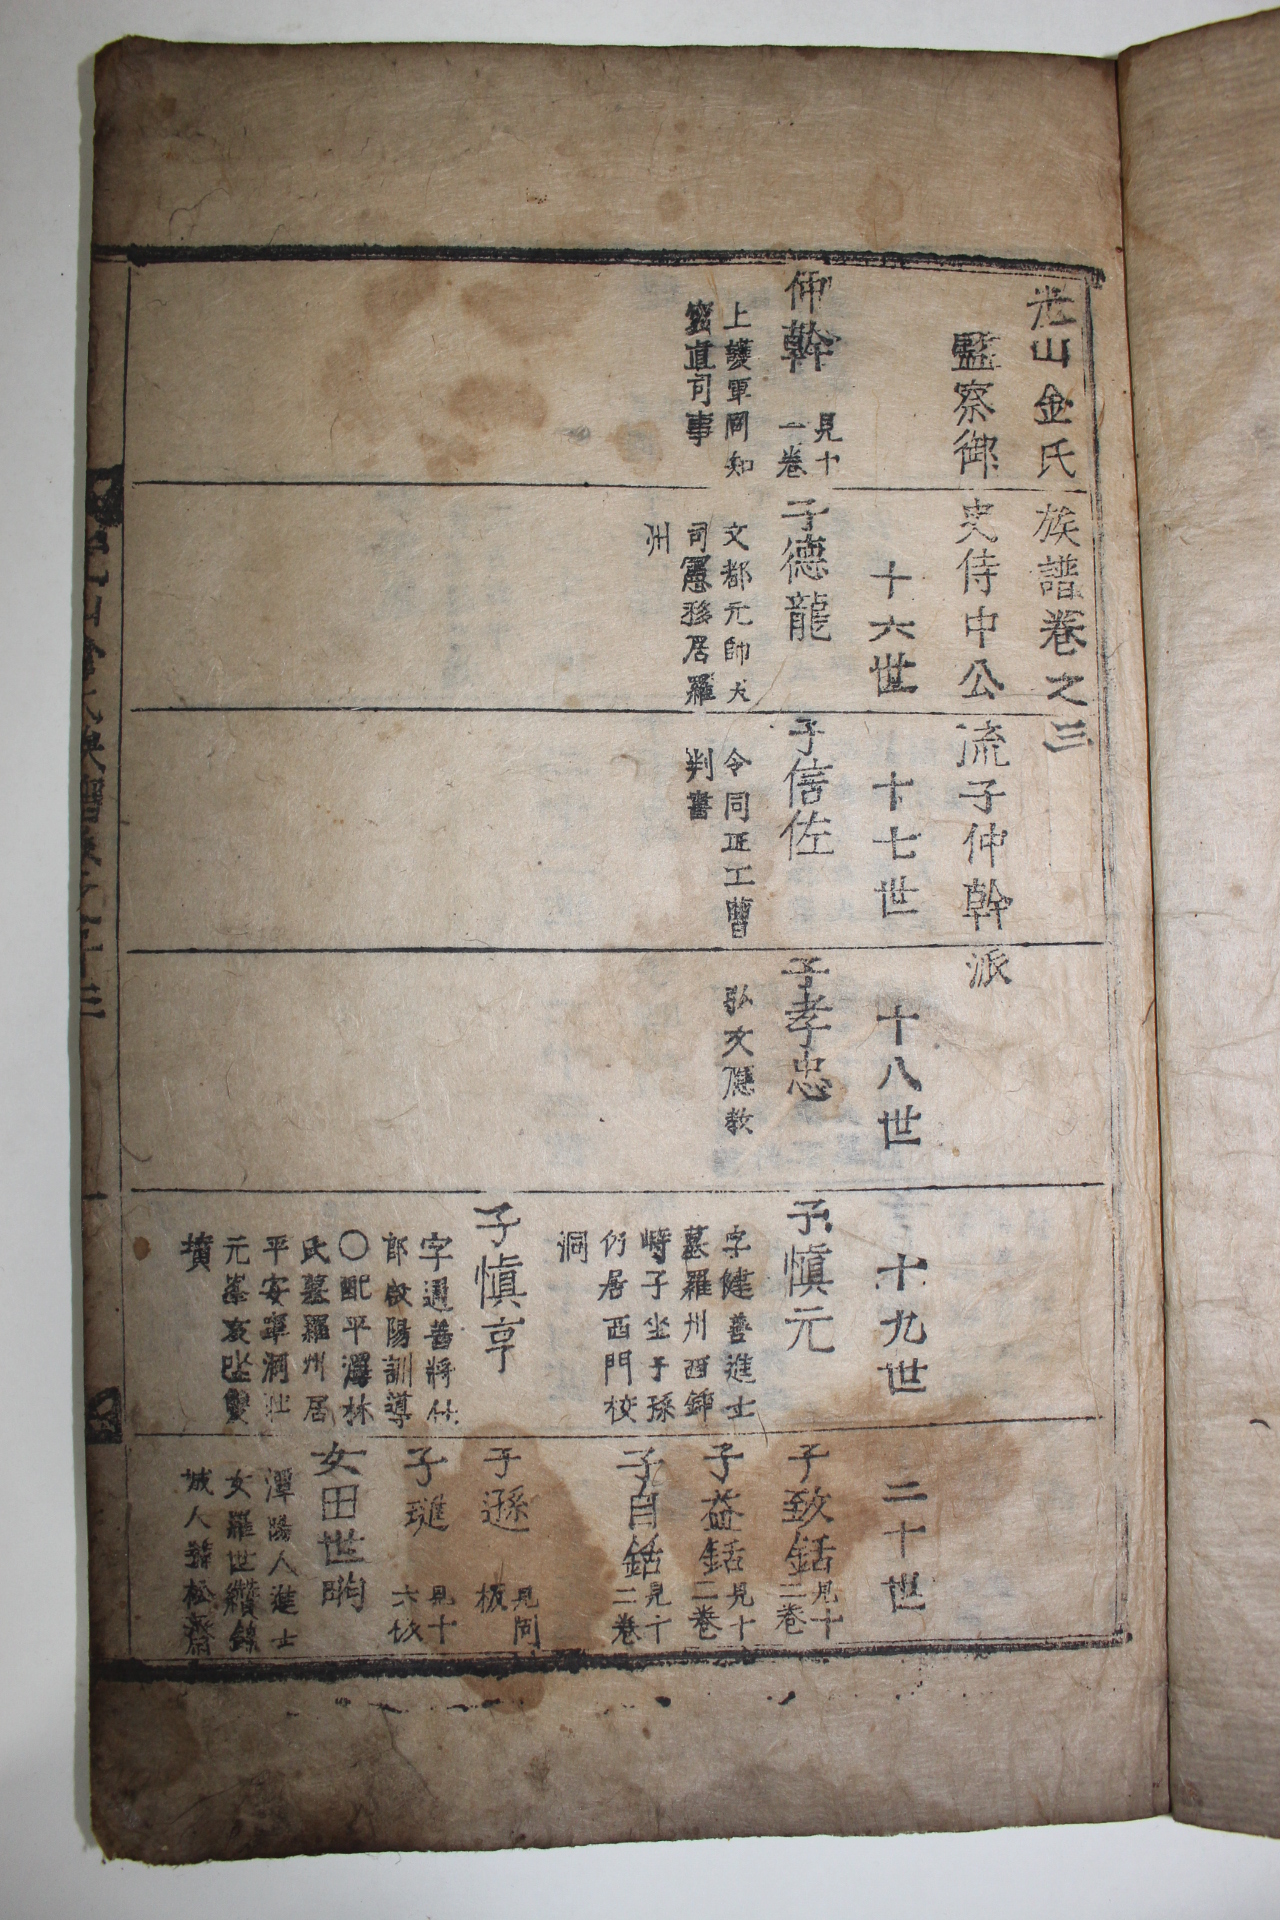 光山金氏族譜卷之三
監察御史侍中公流子仲幹派
仲幹
見十
一卷
上護軍同知
密直司事
十六世
子德龍
文都元帥大
司憲移居羅
州
十七世
子信佐
令同正工曹
判書
十八世
子孝忠
弘文應敎
十九世
子愼元
字健善進士
墓羅州西錦
峙子坐子孫
仍居西門校
洞
子愼亨
字通善將仕
郞啟陽訓導
〇配平澤林
氏墓羅州居
平安
元峯亥坐雙
墳
二十世
子致銛
見十
二卷
子益銛
見十
二卷
子自銛
見十
二卷
子遜
見同
板
子璡
見十
六板
女田世
潭陽人進士
女羅世纘錦
城人號松齋